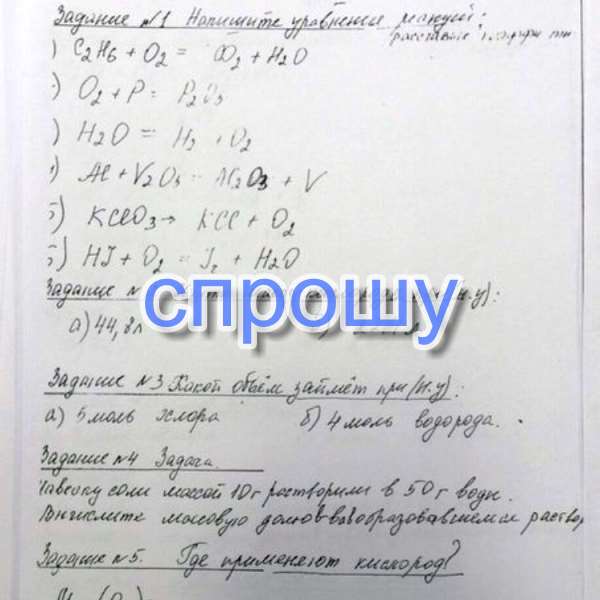 Задание №1 Напишите уравнения реакций:
расставьте
) C2H6 + O2 = CO2 + H2O
) O2 + P = P2O5
) H2O = H2 + O2
) Al + V2O5 = Al2O3 + V
5) KClO3 → KCl + O2
) HJ + O2 = J2 + H2O
Задание №
спрошу
а) 44,8л
Задание №3 Какой объём займёт при (н.у):
а) 5 моль хлора б) 4 моль водорода.
Задание №4 Задача.
Навеску соли массой 10г растворили в 50г воды.
Вычислите массовую долю в
Задание №5. Где применяют кислород?